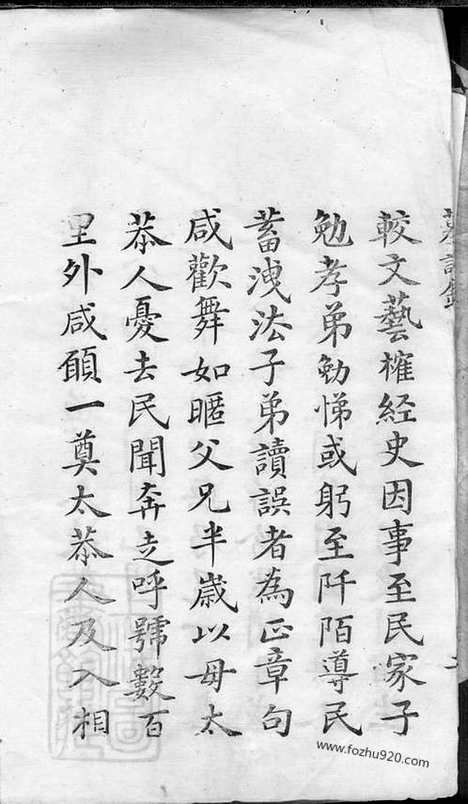 較文藝榷经史因事至民家子
勉孝弟勉悌或躬至阡陌導民
蓄洩法子弟讀誤者為正章句
咸歡舞如暱父兄半嵗以母太
恭人憂去民聞奔走呼號數百
里外咸願一奠太恭人及入相
www.fozhu920.com